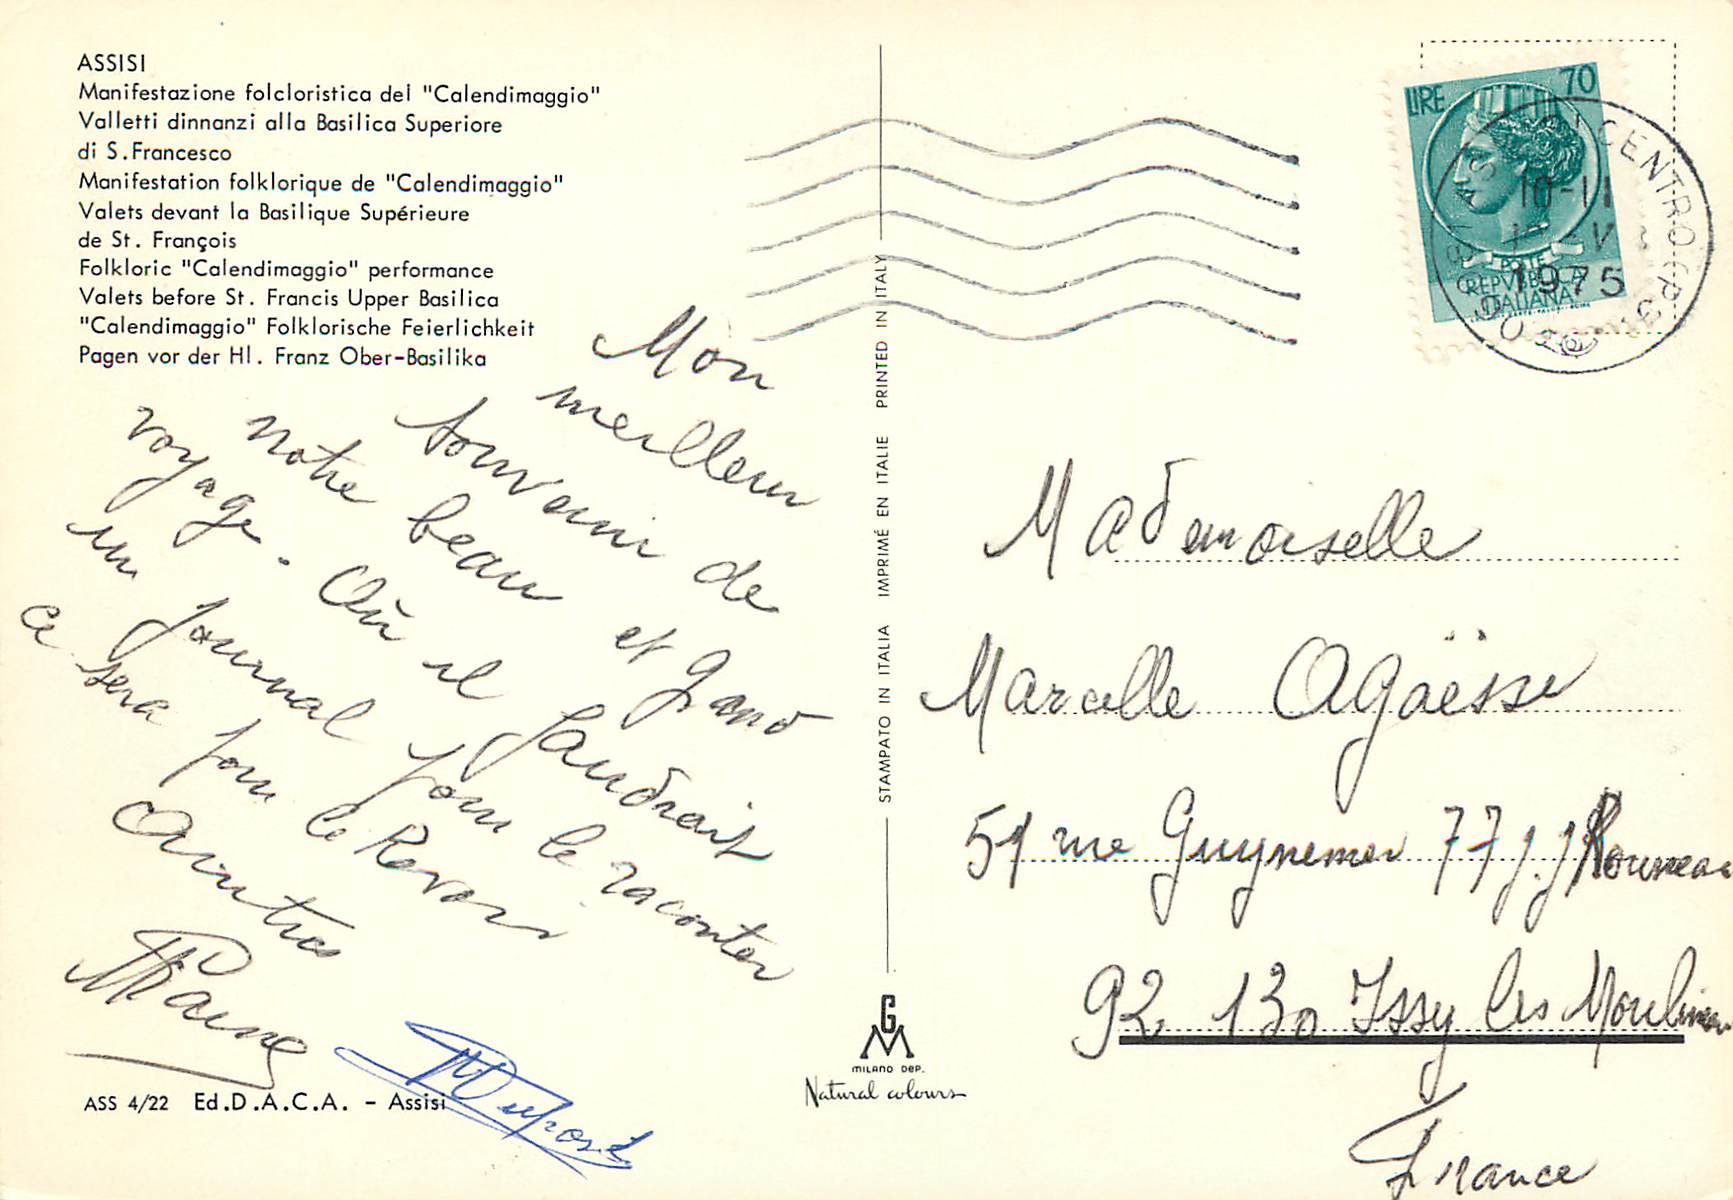 ASSISI
Manifestazione folcloristica del "Calendimaggio"
Valletti dinnanzi alla Basilica Superiore
di S.Francesco
Manifestation folklorique de "Calendimaggio"
Valets devant la Basilique Supérieure
de St. François
Folkloric "Calendimaggio" performance
Valets before St. Francis Upper Basilica
"Calendimaggio" Folklorische Feierlichkeit
Pagen vor der Hl. Franz Ober-Basilika
Mon
meilleur
souvenir de
notre beau et grand
voyage. Où il faudrait
un journal pour le raconter
ce sera pour le Revoir
Amitiés
MDupont
ASS 4/22 Ed.D.A.C.A. - Assisi
STAMPATO IN ITALIA IMPRIMÉ EN ITALIE PRINTED IN ITALY
GM
MILANO DEP.
Natural colours
LIRE 70
POSTE
REPVBBLICA
ITALIANA
CENTRO (PG)
10-11
V
1975
Mademoiselle
Marcelle Agaësse
51 rue Guynemer 77 J.J Rousseau
92 130 Issy les Moulineaux
France